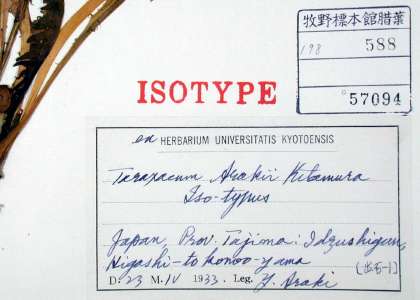 牧野標本館腊葉
198 588
57094
ISOTYPE
ex HERBARIUM UNIVERSITATIS KYOTOENSIS
Taraxacum Arakii Kitamura
Iso-typus
Japan, Prov. Tajima: Idzushigun,
Higashi-tokonoo-yama
(出石-1)
D. 23 M. IV 1933. Leg. Y. Araki